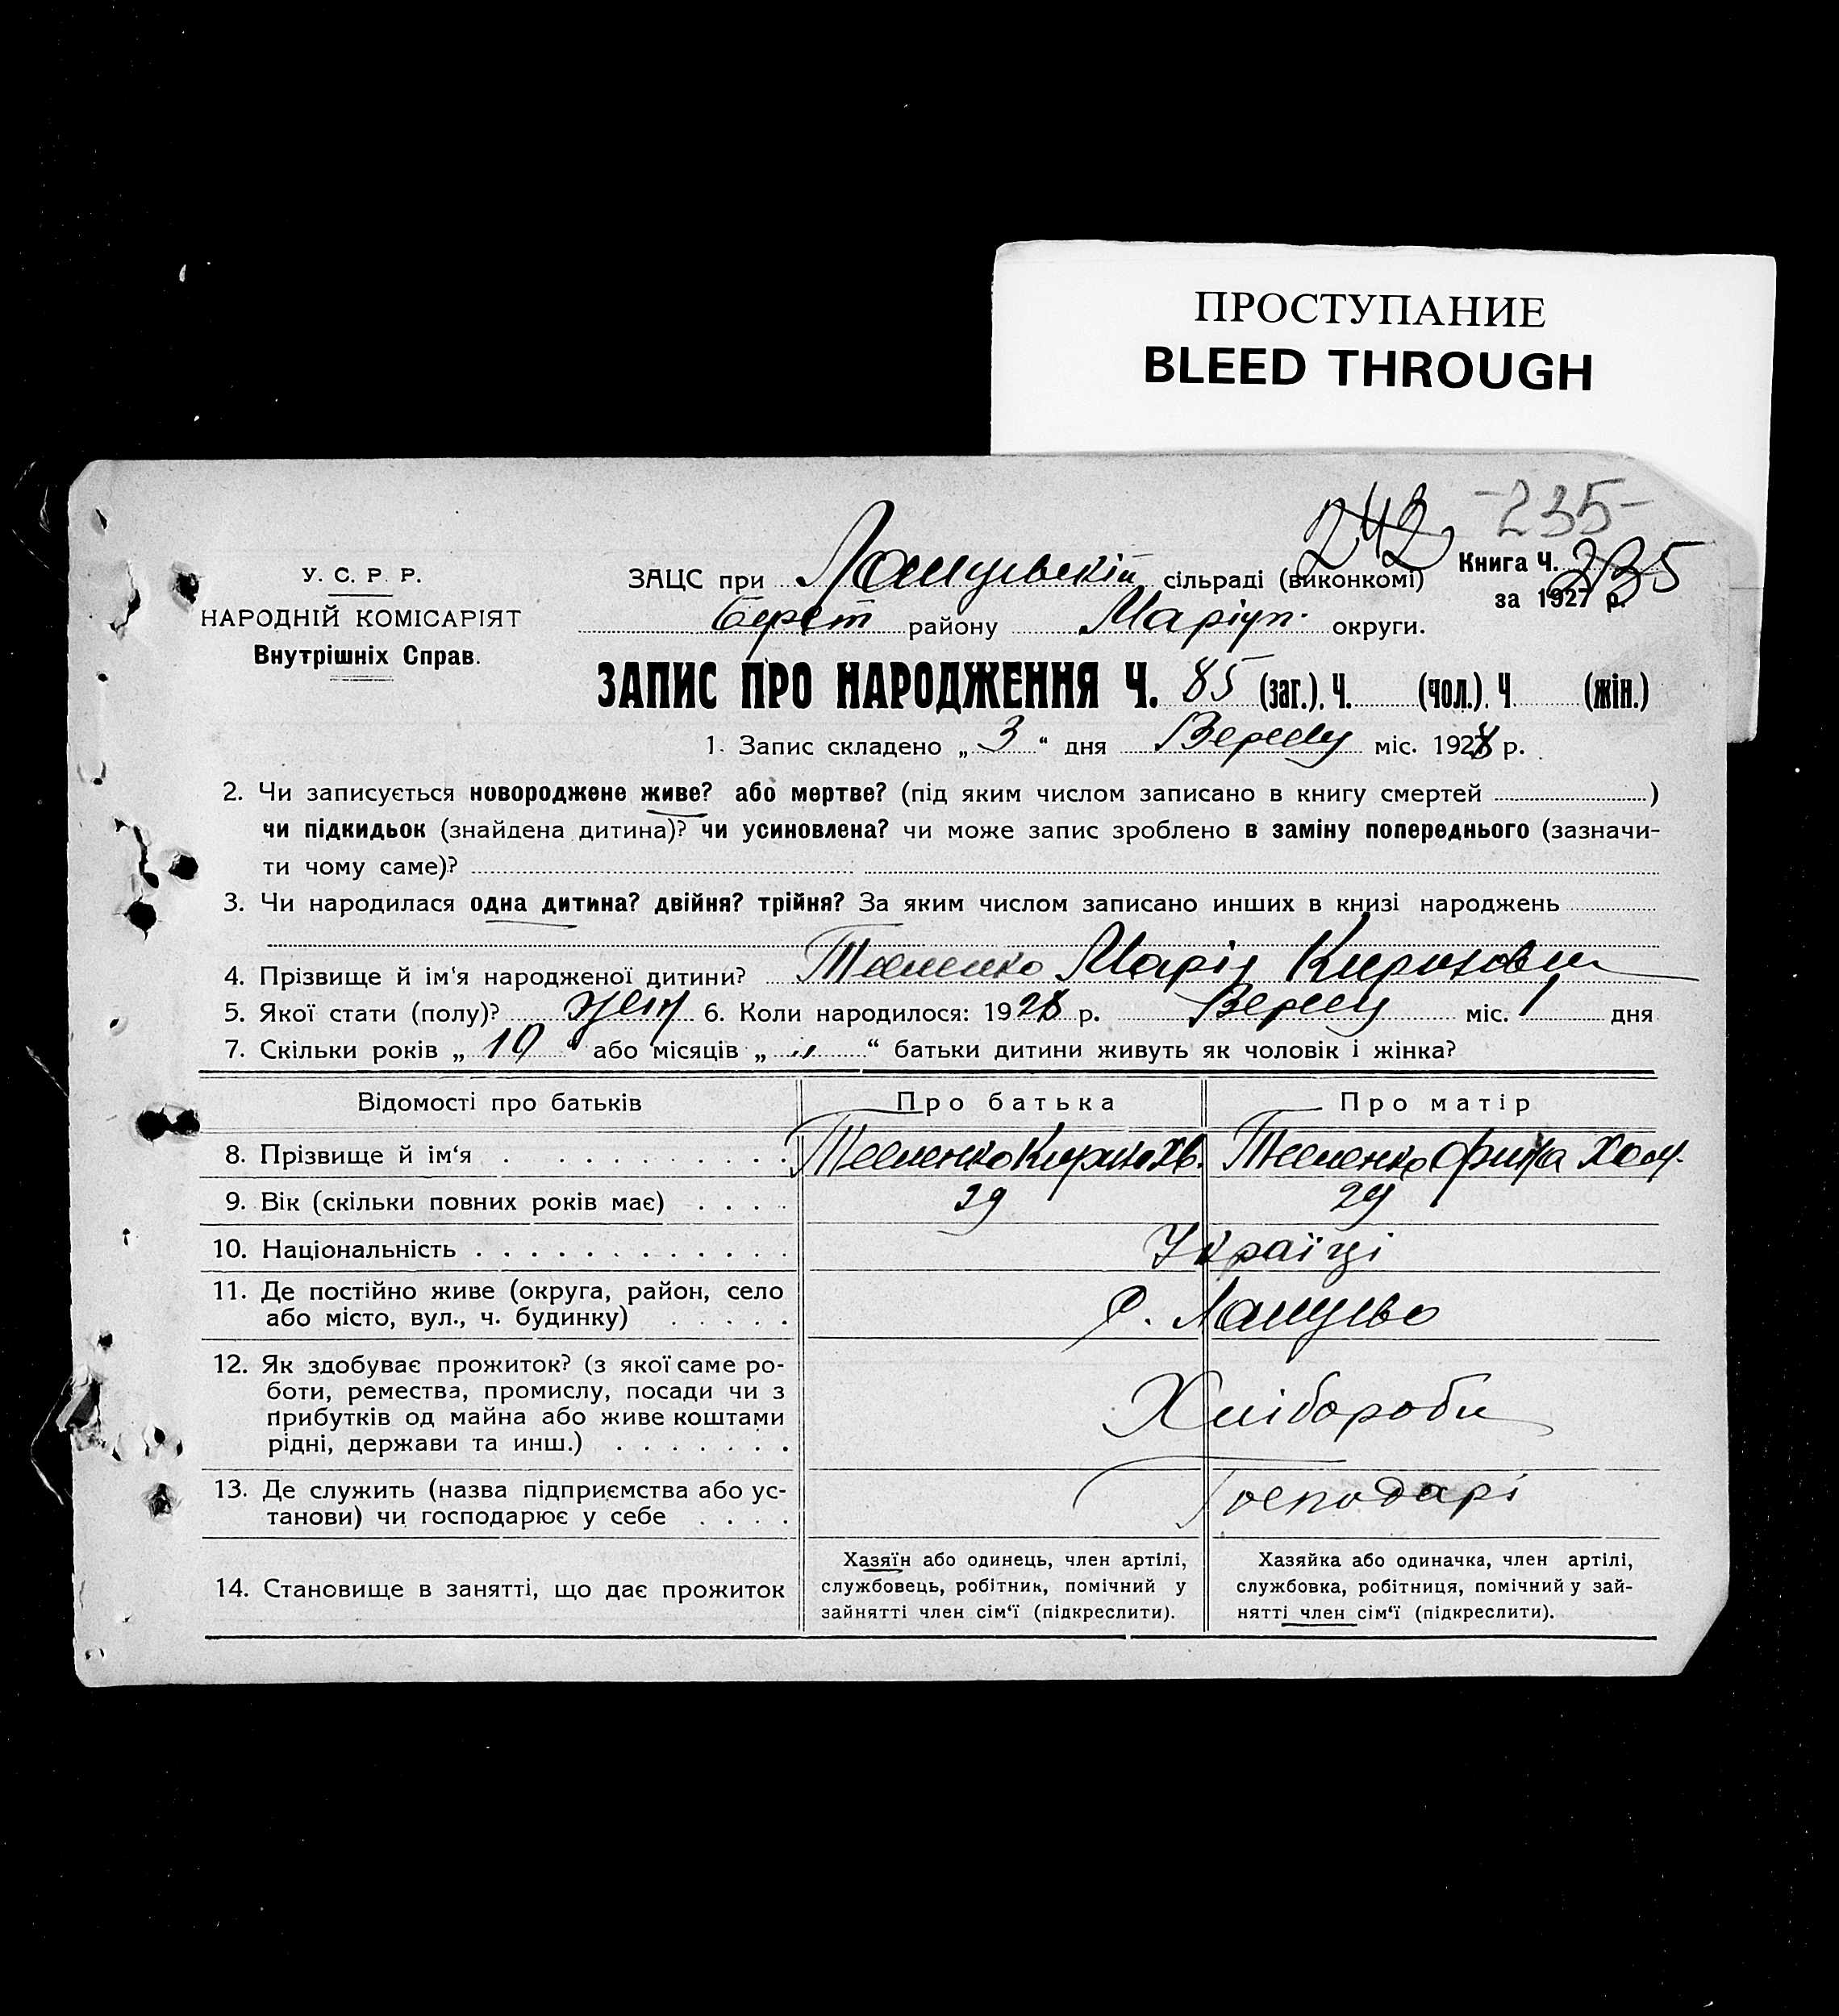 ПРОСТУПАНИЕ
BLEED THROUGH
-235-
242
У. С. Р. Р.
НАРОДНІЙ КОМІСАРІЯТ
Внутрішніх Справ.
ЗАЦС при сільраді (виконкомі)
Книга Ч. 235
за 1927 р.
Берест району Маріуп. округи.
ЗАПИС ПРО НАРОДЖЕННЯ Ч. 85 (заг.). Ч. (чол.). Ч. (жін.)
1. Запис складено „ 3 “ дня Вересня міс. 1928 р.
2. Чи записується новороджене живе? або мертве? (під яким числом записано в книгу смертей )
чи підкидьок (знайдена дитина)? чи усиновлена? чи може запис зроблено в заміну попереднього (зазначи-
ти чому саме)?
3. Чи народилася одна дитина? двійня? трійня? За яким числом записано инших в книзі народжень
4. Прізвище й ім'я народженої дитини? Марія
5. Якої стати (полу)? жен 6. Коли народилося: 1928 р. Вересня міс. 1 дня
7. Скільки років „ 10 “ або місяців „ „ “ батьки дитини живуть як чоловік і жінка?
Відомості про батьків Про батька Про матір
8. Прізвище й ім'я
9. Вік (скільки повних років має) 29 29
10. Національність Україці
11. Де постійно живе (округа, район, село
або місто, вул., ч. будинку)
12. Як здобуває прожиток? (з якої саме ро-
боти, ремества, промислу, посади чи з
прибутків од майна або живе коштами
рідні, держави та инш.)
Хлібороби
13. Де служить (назва підприємства або ус-
танови) чи господарює у себе
Господарі
14. Становище в занятті, що дає прожиток
Хазяїн або одинець, член артілі,
службовець, робітник, помічний у
зайнятті член сім'ї (підкреслити).
Хазяйка або одиначка, член артілі,
службовка, робітниця, помічний у зай-
нятті член сім'ї (підкреслити).